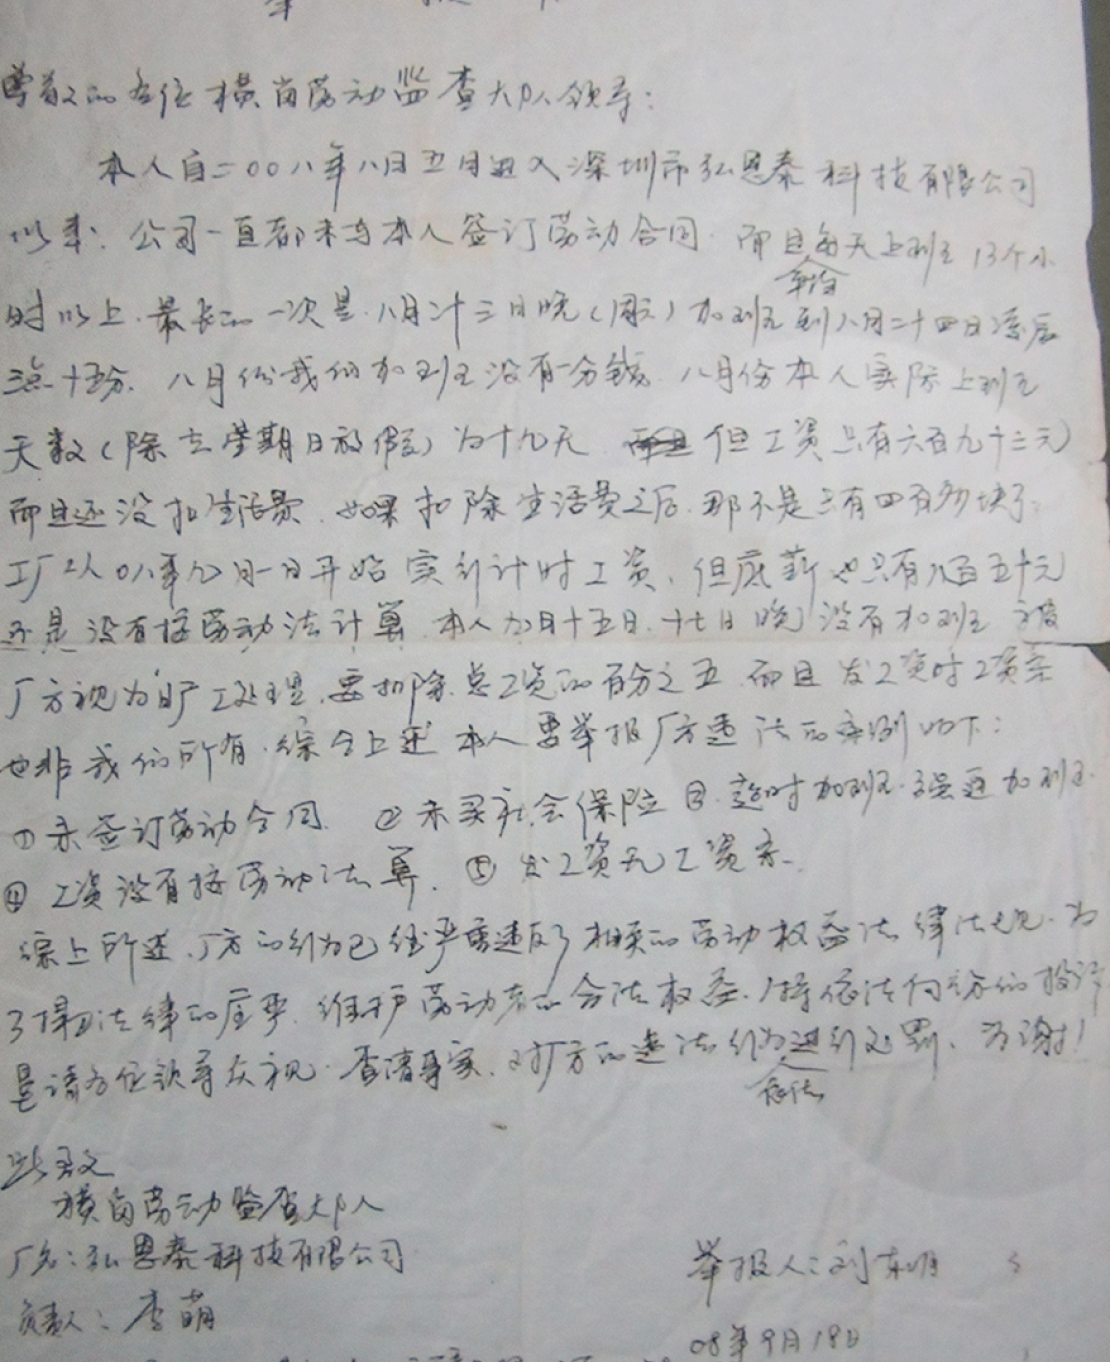 尊敬的各位横岗劳动监查大队领导:
本人自二00八年八月五日进入深圳市弘恩泰科技有限公司
以来. 公司一直都未与本人签订劳动合同. 而且每天平均上班13个小
时以上. 最长的一次是八月二十三日晚(周六)加班到八月二十四日凌晨
三点十五分. 八月份我们加班没有一分钱. 八月份本人实际上班
天数(除去星期日放假)为十九天. 但工资只有六百九十三元)
而且还没扣生活费. 如果扣除生活费之后. 那不是只有四百多块了.
工厂从08年九月一日开始实行计时工资. 但底薪也只有八百五十元
还是没有按劳动法计算. 本人九月十五日. 十七日晚没有加班 被
厂方视为旷工处理. 要扣除总工资的百分之五. 而且发工资时工资条
也非我们所有. 综合上述 本人要举报厂方违法的案例如下:
① 未签订劳动合同. ② 未买社会保险 ③. 超时加班. 强迫加班.
④ 工资没有按劳动法算. ⑤ 发工资无工资条.
综上所述. 厂方的行为已经严重违反了相关的劳动权益法律法规. 为
了捍卫法律的庄严. 维护劳动者的合法权益. 特依法向你们投诉
恳请各位领导重视. 查清事实. 对厂方的违法行为依法进行处罚. 为谢!
此致
横岗劳动监查大队
厂名: 弘恩泰科技有限公司
举报人: 刘东明
负责人: 李萌
08年9月19日